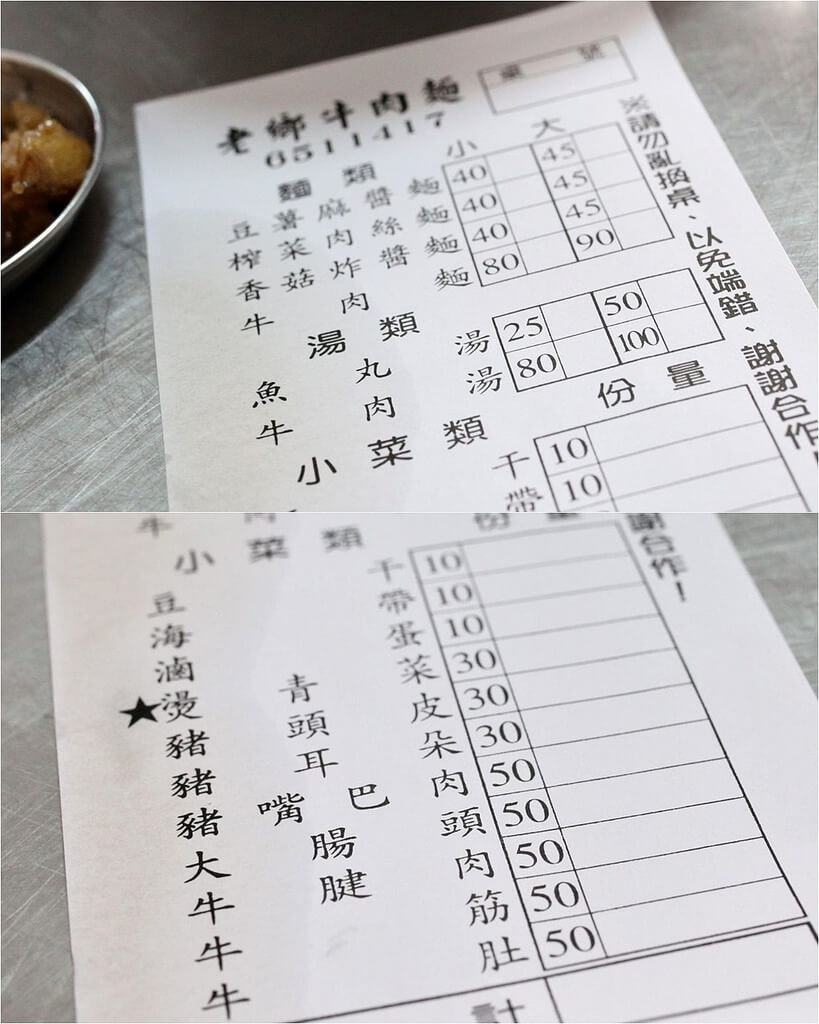 老鄉牛肉麵
6511417
桌號
※請勿亂換桌、以免端錯、謝謝合作！
麵類 小 大
豆薯麻醬麵 40 45
榨菜肉絲麵 40 45
香菇炸醬麵 40 45
牛肉麵 80 90
湯類
魚丸湯 25 50
牛肉湯 80 100
小菜類 份量
干 10
帶 10
牛肉
小菜類 份量
謝合作！
豆干 10
海帶 10
滷蛋 10
★燙青菜 30
豬頭皮 30
豬耳朵 30
豬嘴巴肉 50
大腸頭 50
牛腱肉 50
牛筋 50
牛肚 50
計